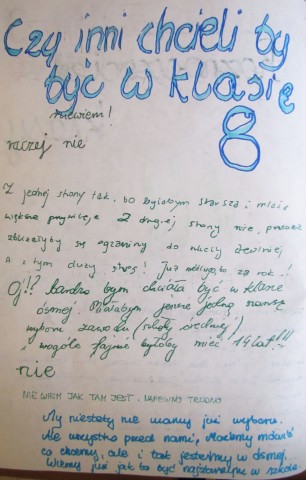 Czy inni chcieli by
być w klasie
8
niewiem!
raczej nie
Z jednej strony tak, bo byłabym starsza i miała
większe przywileje Z drugiej strony nie, ponieważ
zbliżałyby się egzaminy do
A z tym duży stres! Już za rok..!
Oj!? bardzo bym chciała być w klasie
ósmej. Miałabym jeszcze jedną szansę
wyboru zawodu (szkoły średniej)
i wogóle fajnie byłoby mieć 14 lat!!!
nie
NIE WIEM JAK TAM JEST. NAPEWNO TRUDNO
My niestety nie mamy już wyboru.
Ale wszystko przed nami, Możemy mówić
co chcemy, ale i tak jesteśmy w ósmej.
Wiemy już jak to być najstarszym w szkole